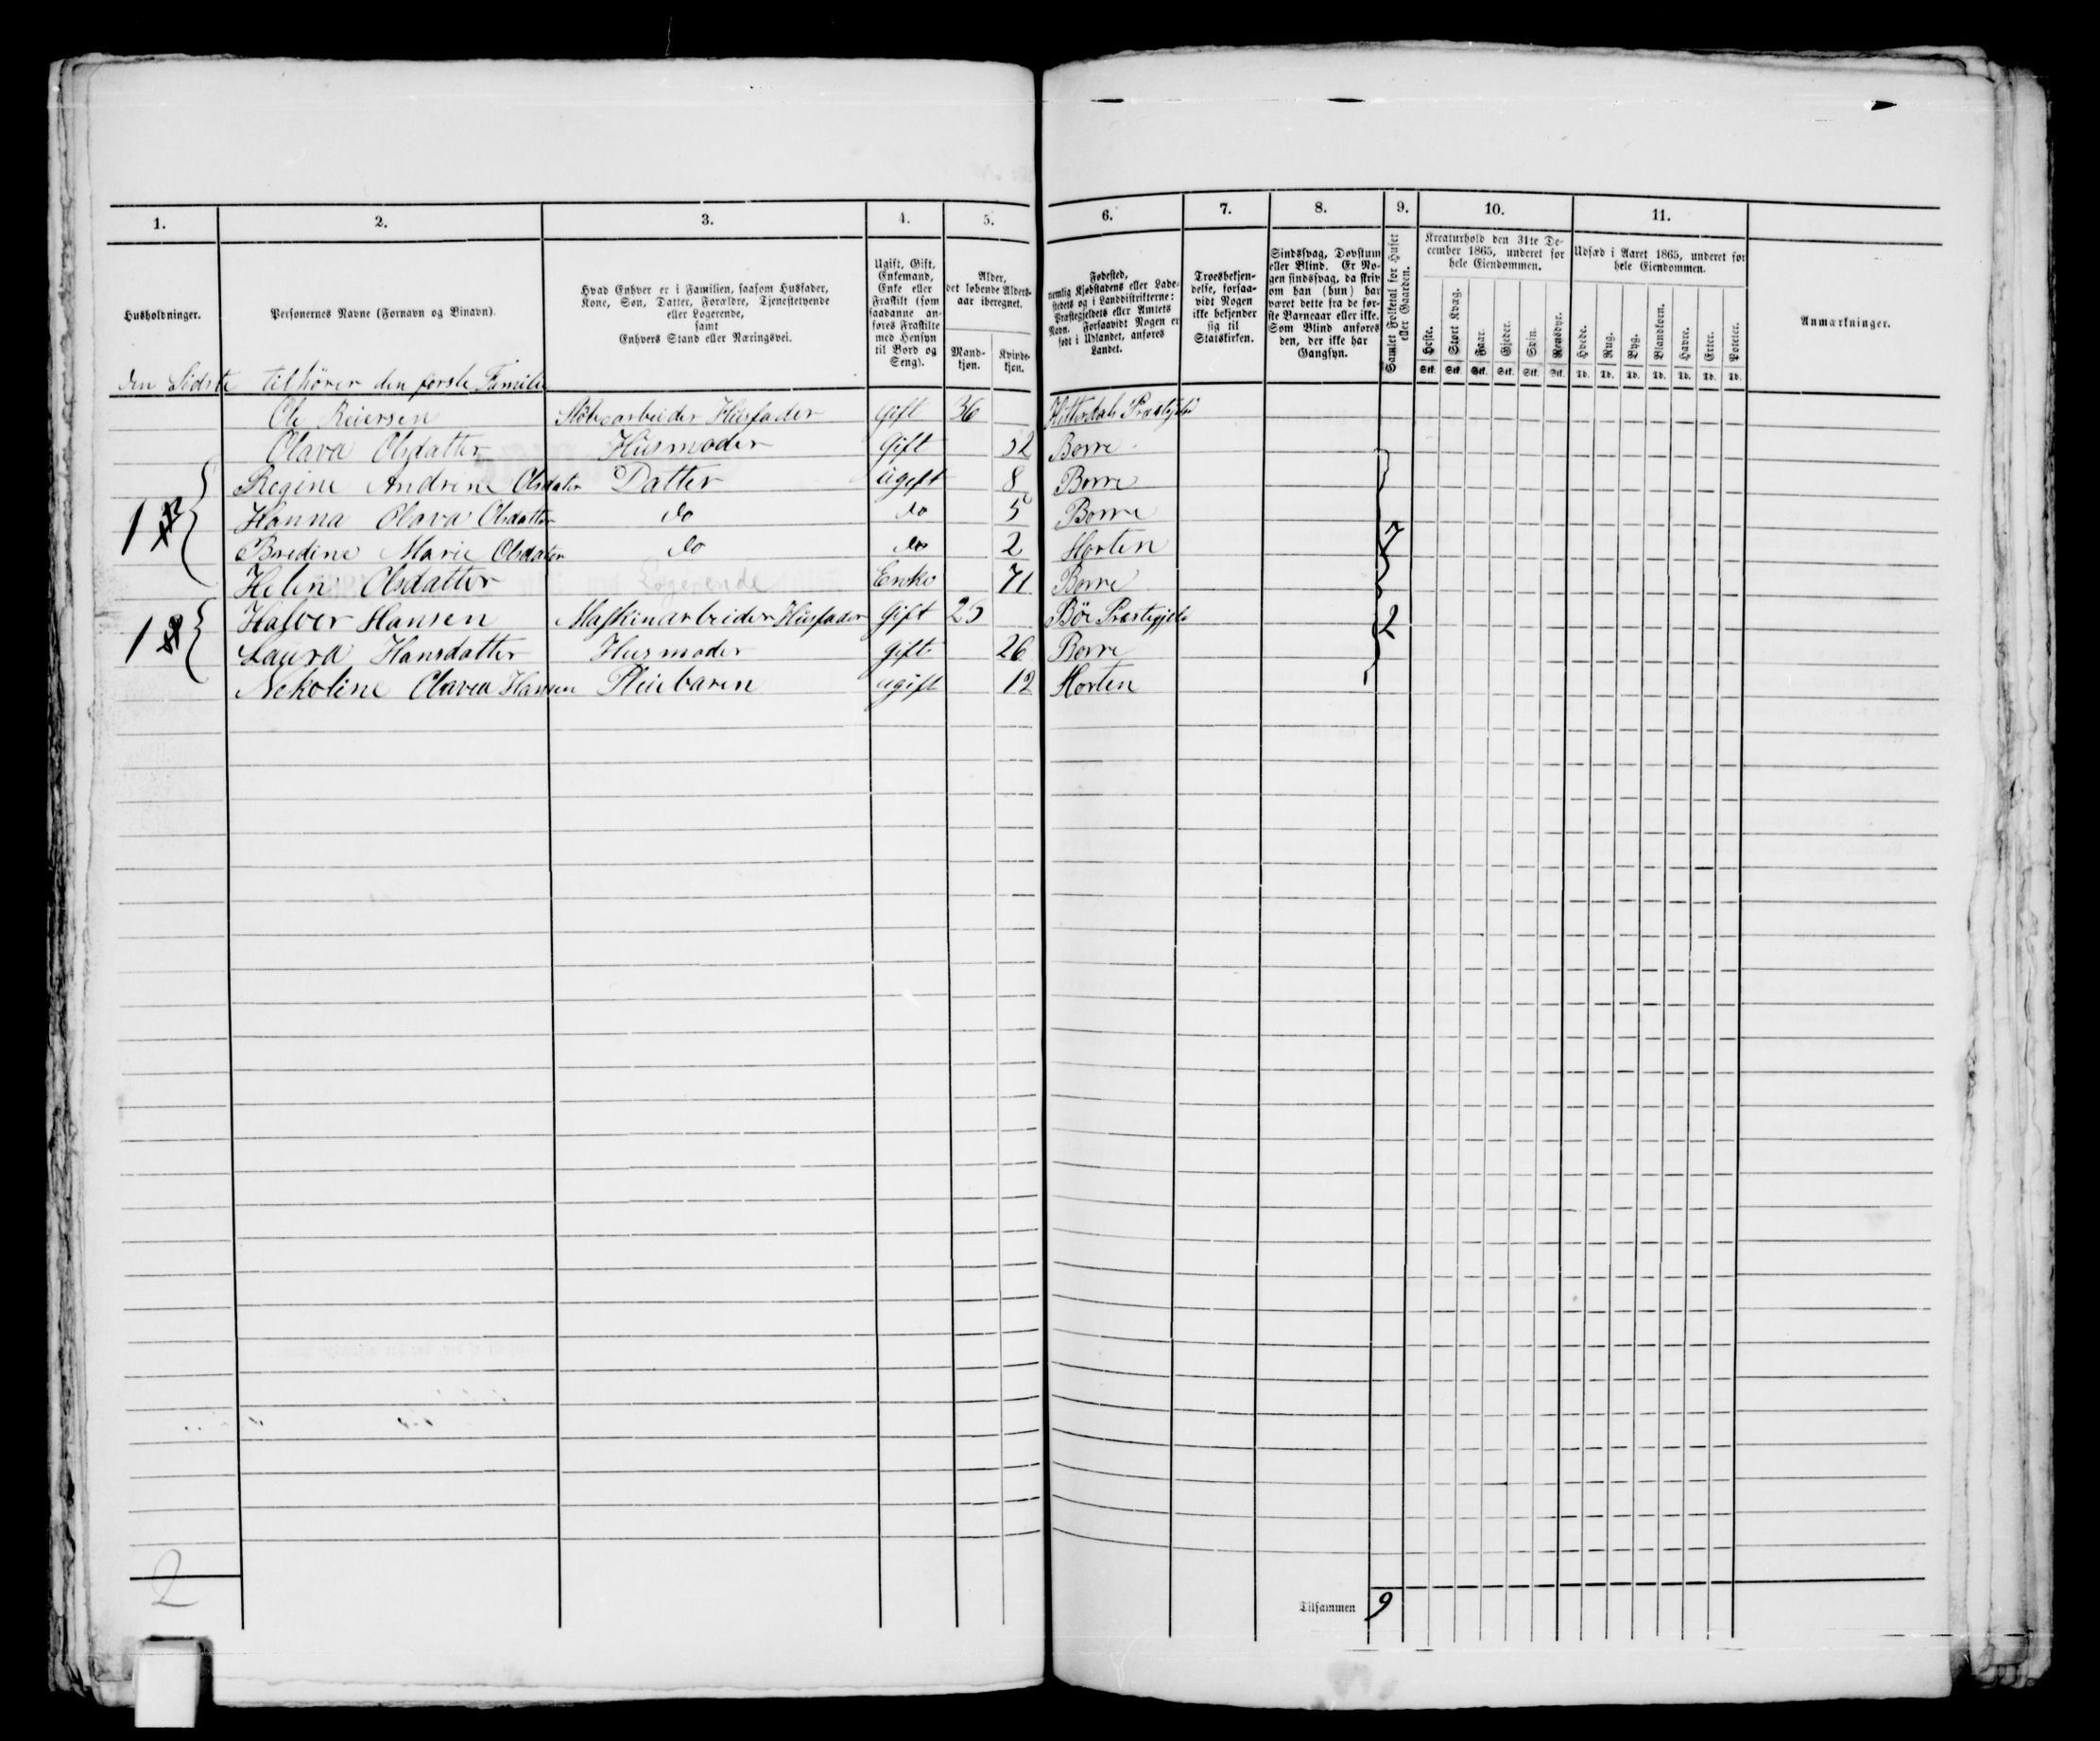 1. 2. 3. 4. 5. 6. 7. 8. 9. 10. 11.
Husholdninger.
Personernes Navne (Fornavn og Binavn).
Hvad Enhver er i Familien, saasom Husfader,
Kone, Søn, Datter, Forældre, Tjenestetyende
eller Logerende,
samt
Enhvers Stand eller Næringsvei.
Ugift, Gift,
Enkemand,
Enke eller
Fraskilt (som
saadanne an-
føres Fraskilte
med Hensyn
til Bord og
Seng).
Alder,
det løbende Alders-
aar iberegnet.
Mand-
kjøn.
Kvinde-
kjøn.
Fødested,
nemlig Kjøbstadens eller Lade-
stedets og i Landdistrikterne:
Præstegjeldets eller Amtets
Navn. Forsaavidt Nogen er
født i Udlandet, anføres
Landet.
Troesbekjen-
delse, forsaa-
vidt Nogen
ikke bekjender
sig til
Statskirken.
Sindssvag, Døvstum
eller Blind. Er No-
gen sindssvag, da skriv
om han (hun) har
været dette fra de før-
ste Barneaar eller ikke.
Som Blind anføres
den, der ikke har
Gangsyn.
Samlet Folketal for Huset
eller Gaarden.
Kreaturhold den 31te De-
cember 1865, underet for
hele Eiendommen.
Heste. Stort Kvæg. Faar. Gjeder. Svin. Rensdyr.
Stk. Stk. Stk. Stk. Stk. Stk.
Udsæd i Aaret 1865, underet for
hele Eiendommen.
Hvede. Rug. Byg. Blandkorn. Havre. Erter. Poteter.
Td. Td. Td. Td. Td. Td. Td.
Anmærkninger.
den Sidste tilhører den første Familie
Ole Reiersen Husfader Gift 36 Hitterdals Præstegjeld
Olava Olsdatter Husmoder Gift 32 Borre
Regine Andrine Olsdatter Datter ugift 8 Borre
1 Hanna Olava Olsdatter do do 5 Borre
Bredine Marie Olsdatter do do 2 Horten 7
Helen Olsdatter Logerende Enke 71 Borre
Halvor Hansen Maskinarbeider Husfader Gift 25 Bøe Præstegjeld
1 Laura Hansdatter Husmoder gift 26 Borre 2
Nekoline Olavea Hansen Pleiebaren ugift 12 Horten
2
Tilsammen 9